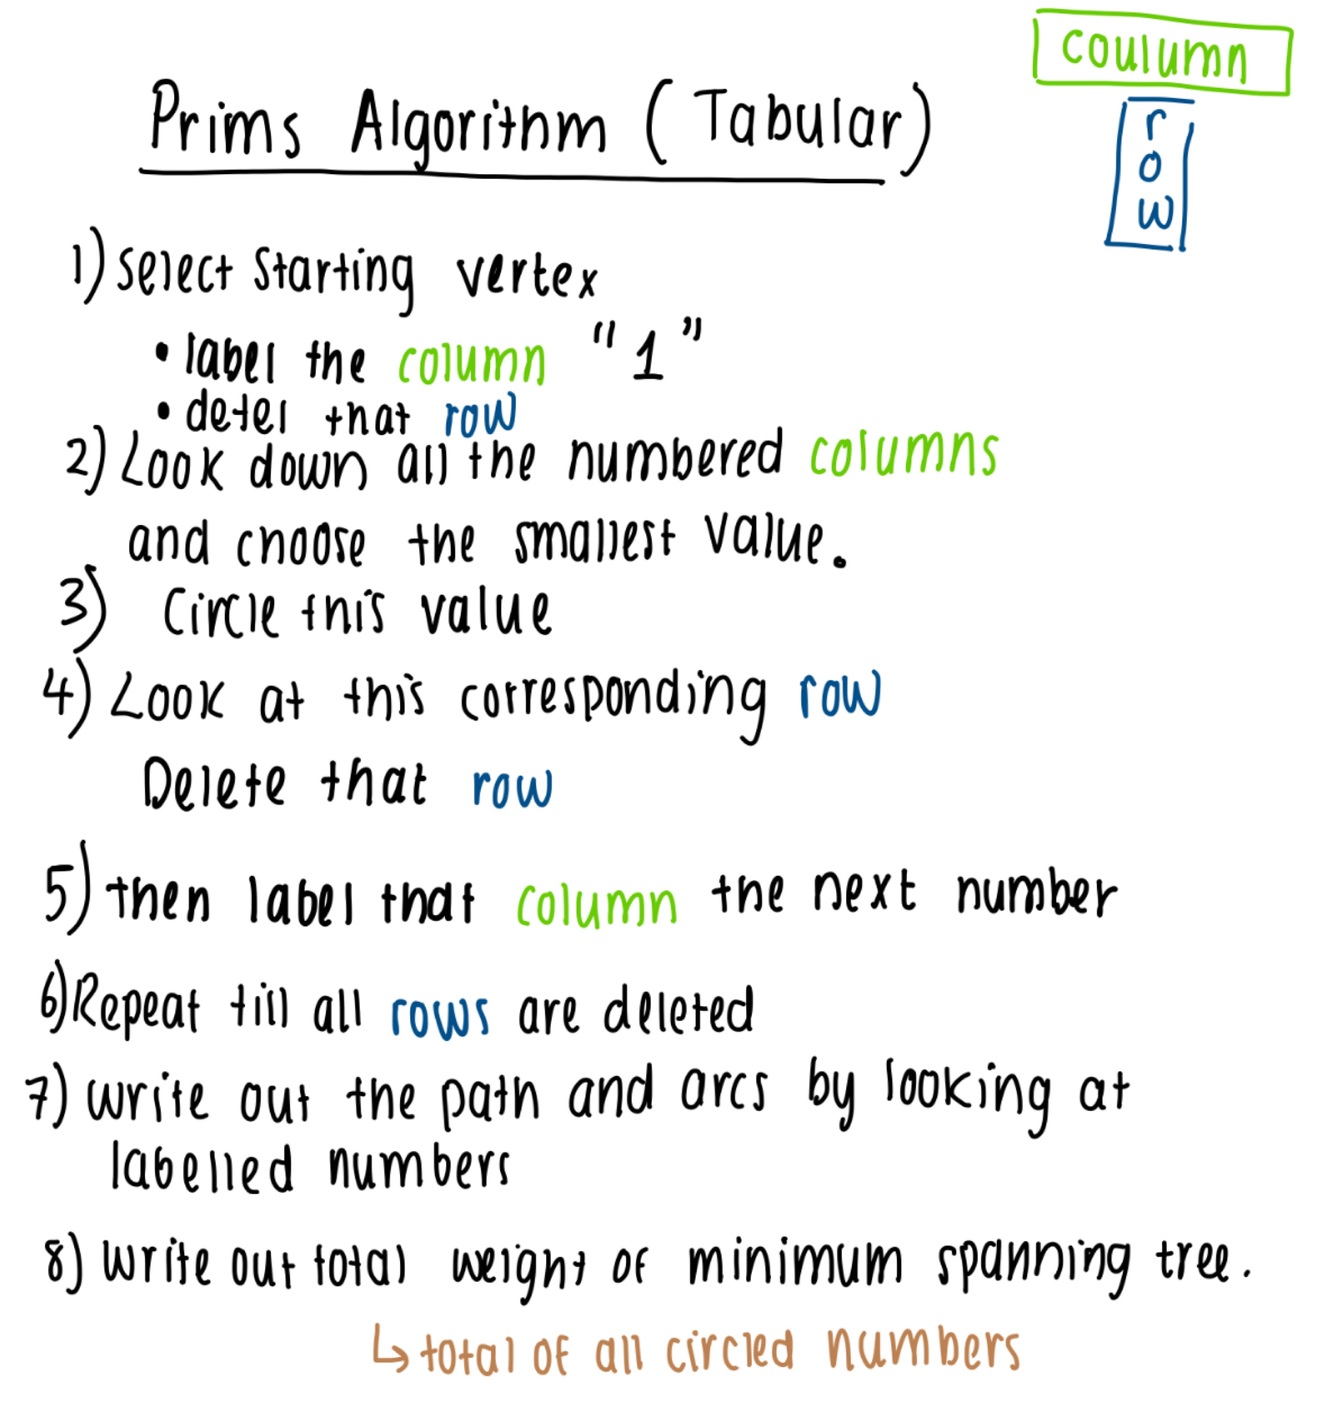 coulumn
Prims Algorithm (Tabular)
row
1) select starting vertex
• label the column "1"
• detel that row
2) Look down all the numbered columns
and choose the smallest value.
3) Circle this value
4) Look at this corresponding row
Delete that row
5) then label that column the next number
6) Repeat till all rows are deleted
7) write out the path and arcs by looking at
labelled numbers
8) write out total weight of minimum spanning tree.
↳ total of all circled numbers